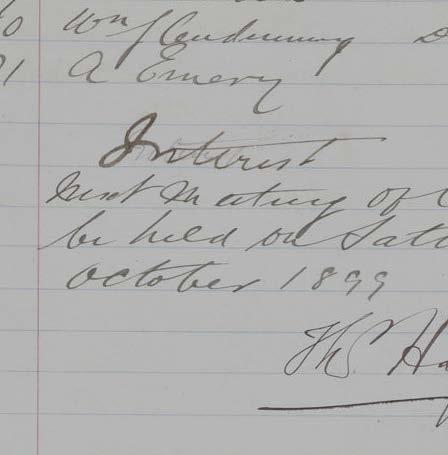 Wm Glendinning
91 A Emery
Interest
Next Meeting of
be held on Sat
October 1899
Thos. Ha